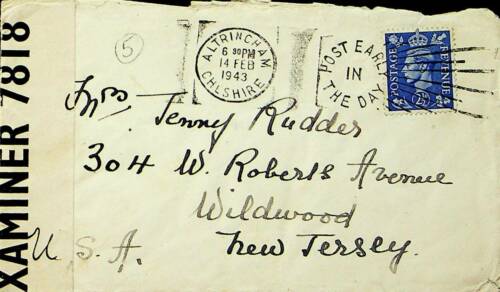 XAMINER 7818
5
ALTRINCHAM
6 30PM
14 FEB
1943
CHESHIRE
POST EARLY
IN
THE DAY
POSTAGE
REVENUE
2½D
Mrs Jenny Rudder
304 W. Roberts Avenue
Wildwood
New Jersey.
U. S. A.